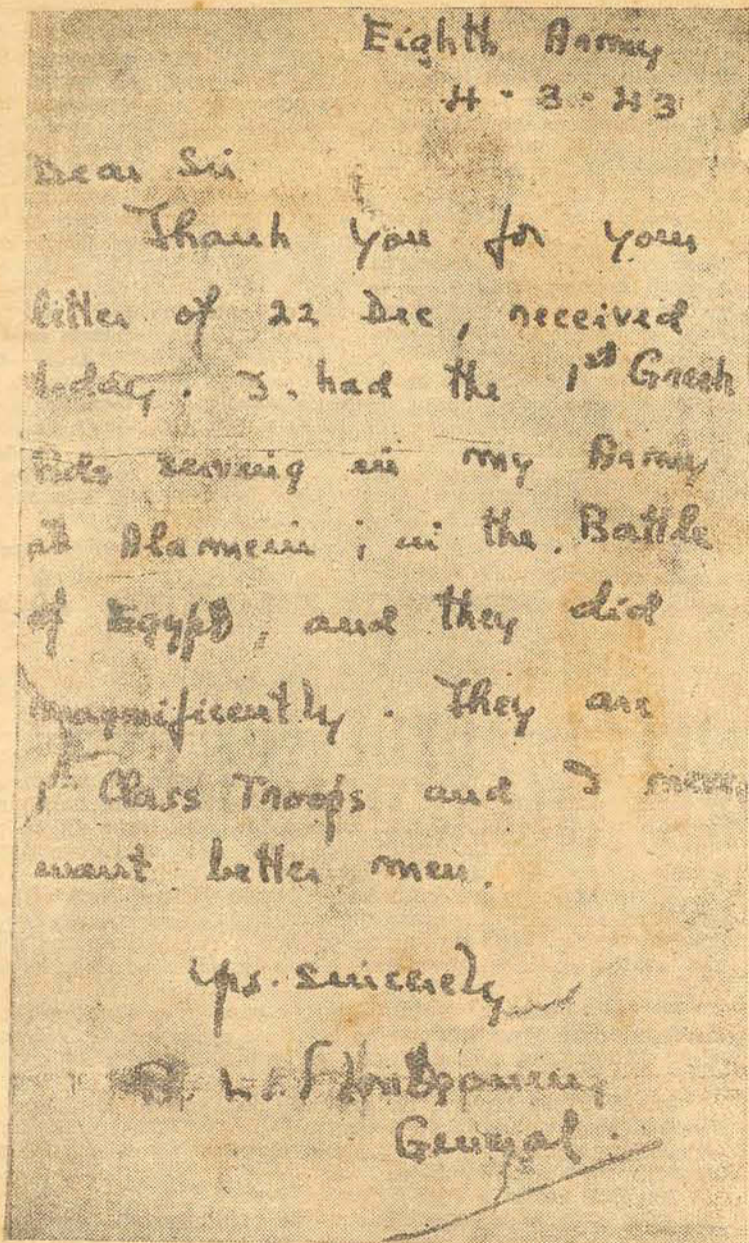 Eighth Army
4-3-43
Dear Sir
Thank you for your
letter of 22 Dec, received
today. I had the 1st Greek
Bde serving in my Army
at Alamein; in the Battle
of Egypt, and they did
magnificently. They are
1st Class Troops and I never
want better men.
Yrs. sincerely
B. L. Montgomery
General.